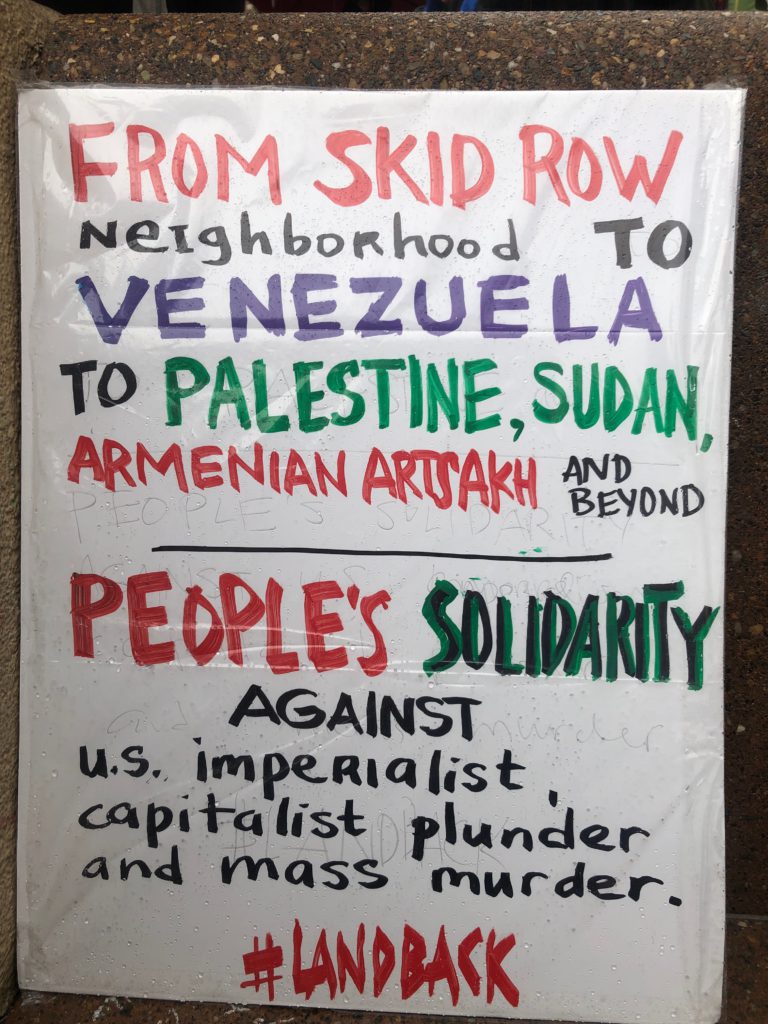 FROM SKID ROW
NeIghboRhood TO
VENEZUELA
TO PALESTINE, SUDAN,
ARMENIAN ARTSAKH AND
BEYOND
PEOPLE'S SOLIDARITY
AGAINST
u.s. impeRIalist,
capitalist plunder
and mass murder.
#LANDBACK